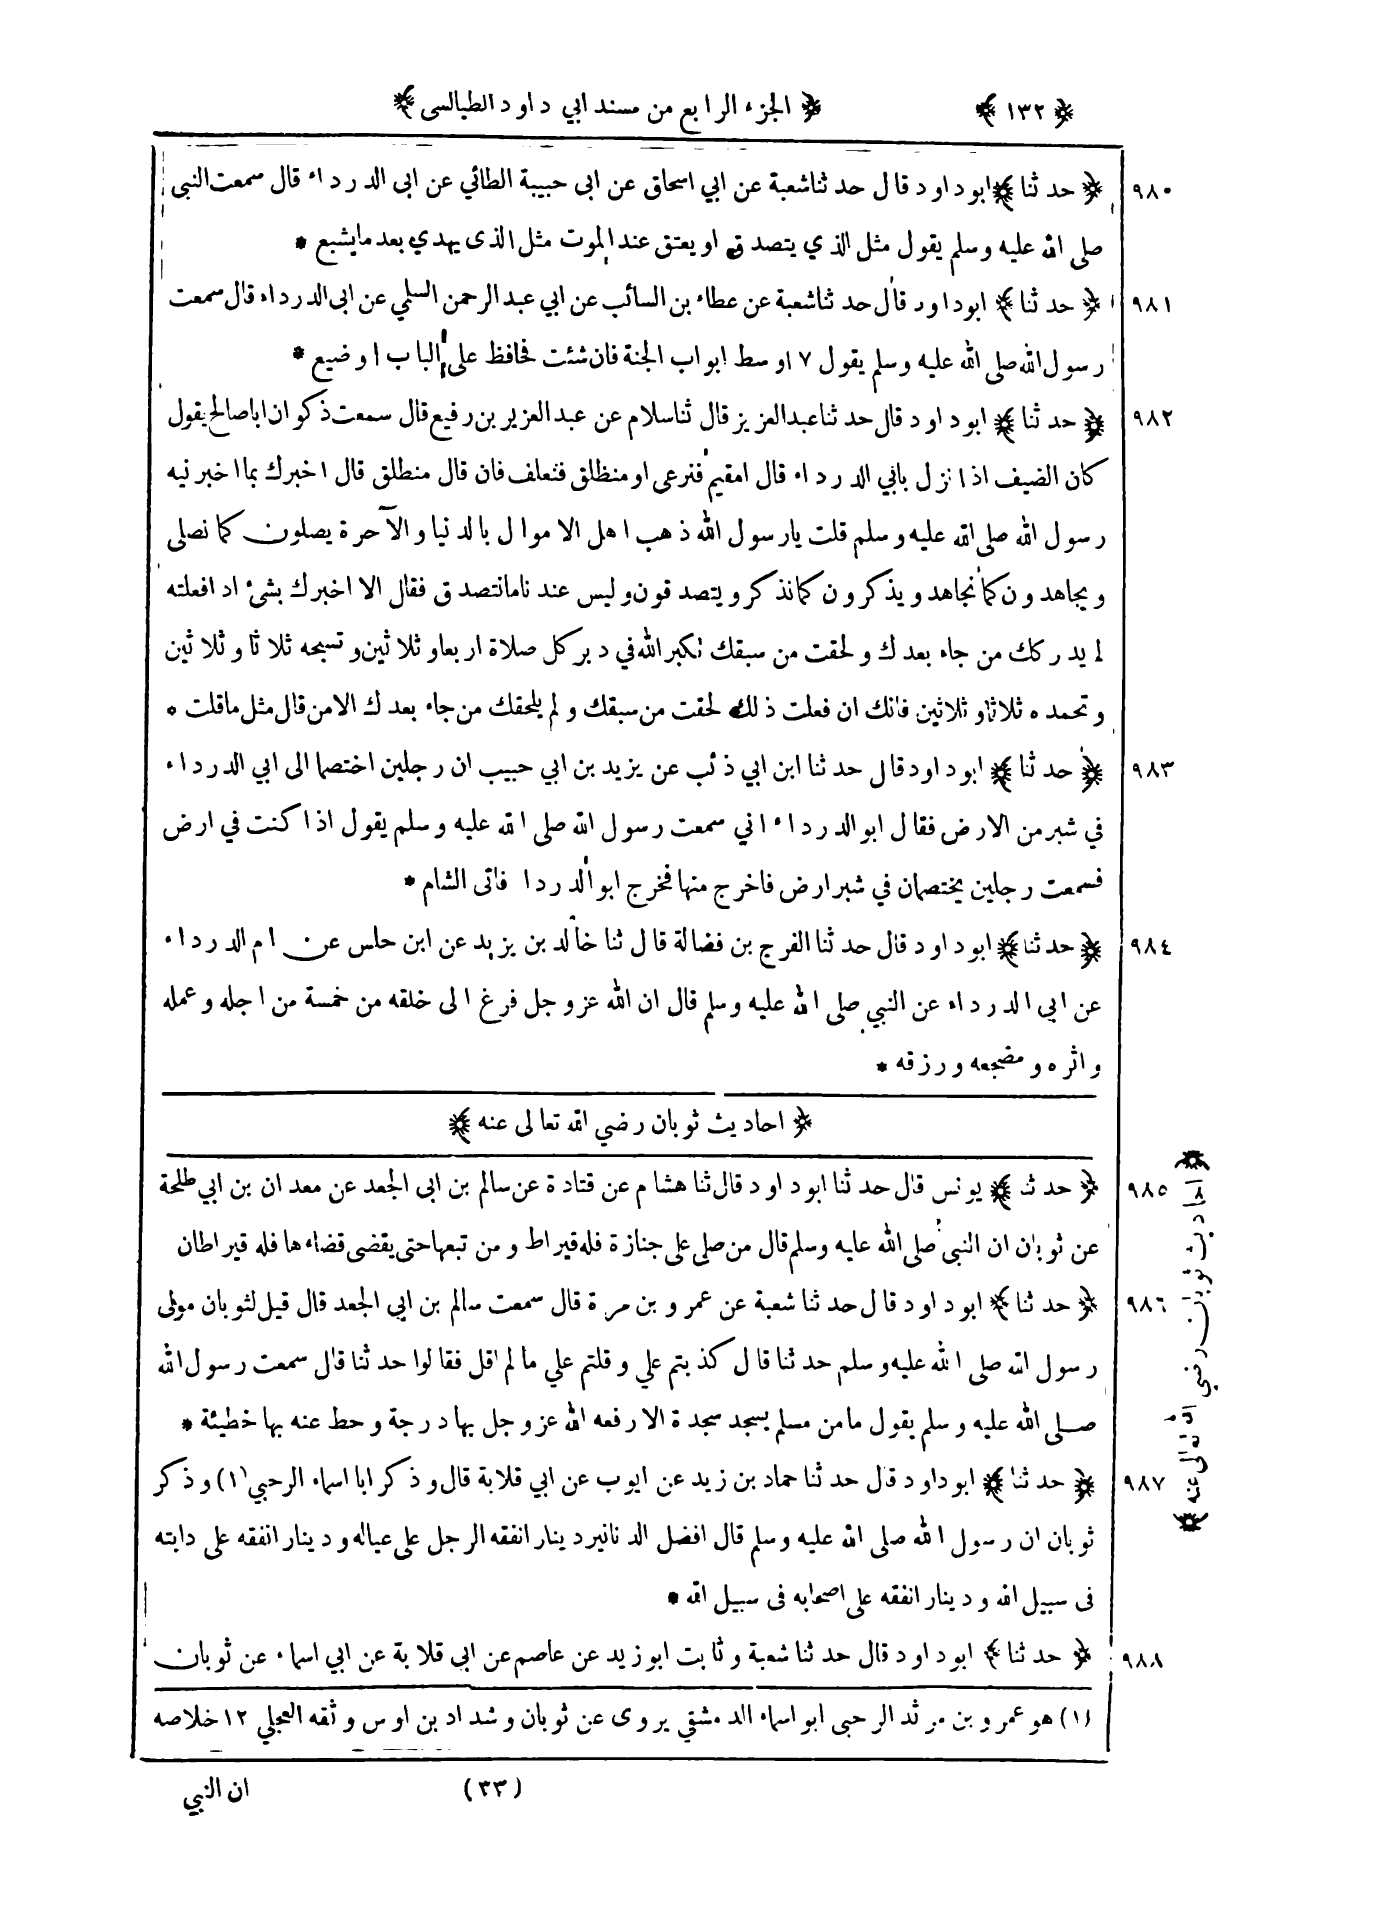 ﴿ ١٣٢ ﴾
﴿ الجزء الرابع من مسند ابي داود الطيالسى ﴾
٩٨٠ ﴿ حدثنا ﴾ ابوداود قال حدثنا شعبة عن ابي اسحاق عن ابى حبيبة الطائي عن ابى الدرداء قال سمعت النبى
صلى الله عليه وسلم يقول مثل الذي يتصدق او يعتق عند الموت مثل الذى يهدي بعد مايشبع *
٩٨١ ﴿ حدثنا ﴾ ابوداود قال حدثنا شعبة عن عطاء بن السائب عن ابي عبدالرحمن السلمي عن ابى الدرداء قال سمعت
رسول الله صلى الله عليه وسلم يقول ٧ اوسط ابواب الجنة فان شئت فحافظ على الباب اوضيع *
٩٨٢ ﴿ حدثنا ﴾ ابوداود قال حدثنا عبدالعزيز قال ثنا سلام عن عبدالعزيز بن رفيع قال سمعت ذكوان اباصالح يقول
كان الضيف اذا نزل بابي الدرداء قال امقيم فنرعى او منطلق فنعلف فان قال منطلق قال اخبرك بما اخبرنيه
رسول الله صلى الله عليه وسلم قلت يارسول الله ذهب اهل الاموال بالدنيا والآخرة يصلون كما نصلى
ويجاهدون كما نجاهد ويذكرون كما نذكر ويتصدقون وليس عندنا مانتصدق فقال الا اخبرك بشئ اد افعلته
لم يدركك من جاء بعدك ولحقت من سبقك تكبر الله في دبر كل صلاة اربعا وثلاثين وتسبحه ثلاثا وثلاثين
وتحمده ثلاثا وثلاثين فانك ان فعلت ذلك لحقت من سبقك ولم يلحقك من جاء بعدك الا من قال مثل ماقلت *
٩٨٣ ﴿ حدثنا ﴾ ابوداود قال حدثنا ابن ابي ذئب عن يزيد بن ابي حبيب ان رجلين اختصما الى ابي الدرداء
في شبر من الارض فقال ابو الدرداء اني سمعت رسول الله صلى الله عليه وسلم يقول اذا كنت في ارض
فسمعت رجلين يختصمان في شبر ارض فاخرج منها فخرج ابو الدردا فاتى الشام *
٩٨٤ ﴿ حدثنا ﴾ ابوداود قال حدثنا الفرج بن فضالة قال ثنا خالد بن يزيد عن ابن حلس عن ام الدرداء
عن ابى الدرداء عن النبي صلى الله عليه وسلم قال ان الله عزوجل فرغ الى خلقه من خمسة من اجله وعمله
واثره ومضجعه ورزقه *
﴿ احاديث ثوبان رضي الله تعالى عنه ﴾
٩٨٥ ﴿ حدثنا ﴾ يونس قال حدثنا ابوداود قال ثنا هشام عن قتادة عن سالم بن ابى الجعد عن معدان بن ابي طلحة
عن ثوبان ان النبى صلى الله عليه وسلم قال من صلى على جنازة فله قيراط ومن تبعها حتى يقضى قضاءها فله قيراطان
٩٨٦ ﴿ حدثنا ﴾ ابوداود قال حدثنا شعبة عن عمرو بن مرة قال سمعت سالم بن ابي الجعد قال قيل لثوبان مولى
رسول الله صلى الله عليه وسلم حدثنا قال كذبتم علي وقلتم علي مالم اقل فقالوا حدثنا قال سمعت رسول الله
صلى الله عليه وسلم يقول مامن مسلم يسجد سجدة الا رفعه الله عزوجل بها درجة وحط عنه بها خطيئة *
٩٨٧ ﴿ حدثنا ﴾ ابوداود قال حدثنا حماد بن زيد عن ايوب عن ابي قلابة قال وذكر ابا اسماء الرحبي (١) وذكر
ثوبان ان رسول الله صلى الله عليه وسلم قال افضل الدنانير دينار انفقه الرجل على عياله ودينار انفقه على دابته
فى سبيل الله ودينار انفقه على اصحابه فى سبيل الله *
٩٨٨ ﴿ حدثنا ﴾ ابوداود قال حدثنا شعبة وثابت ابوزيد عن عاصم عن ابى قلابة عن ابي اسماء عن ثوبان
(١) هو عمرو بن مرثد الرحبى ابواسماء الدمشقي يروى عن ثوبان وشداد بن اوس وثقه العجلي ١٢ خلاصه
(٣٣)
ان النبي
﴿ احاديث ثوبان رضي الله تعالى عنه ﴾